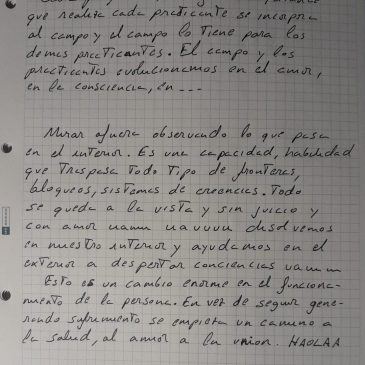 que realiza cada practicante se incorpora
al campo y el campo lo tiene para los
demas practicantes. El campo y los
practicantes evolucionamos en el amor,
en la consciencia, en ---
Mirar afuera observando lo que pasa
en el interior. Es una capacidad, habilidad
que traspasa todo tipo de fronteras,
bloqueos, sistemas de creencias. Todo
se queda a la vista y sin juicio y
con amor uamm uauuuu disolvemos
en nuestro interior y ayudamos en el
exterior a despertar conciencias uammm
Esto es un cambio enorme en el funciona-
miento de la persona. En vez de seguir gene-
rando sufrimiento se empieza un camino a
la salud, al amor a la union. HAOLAA